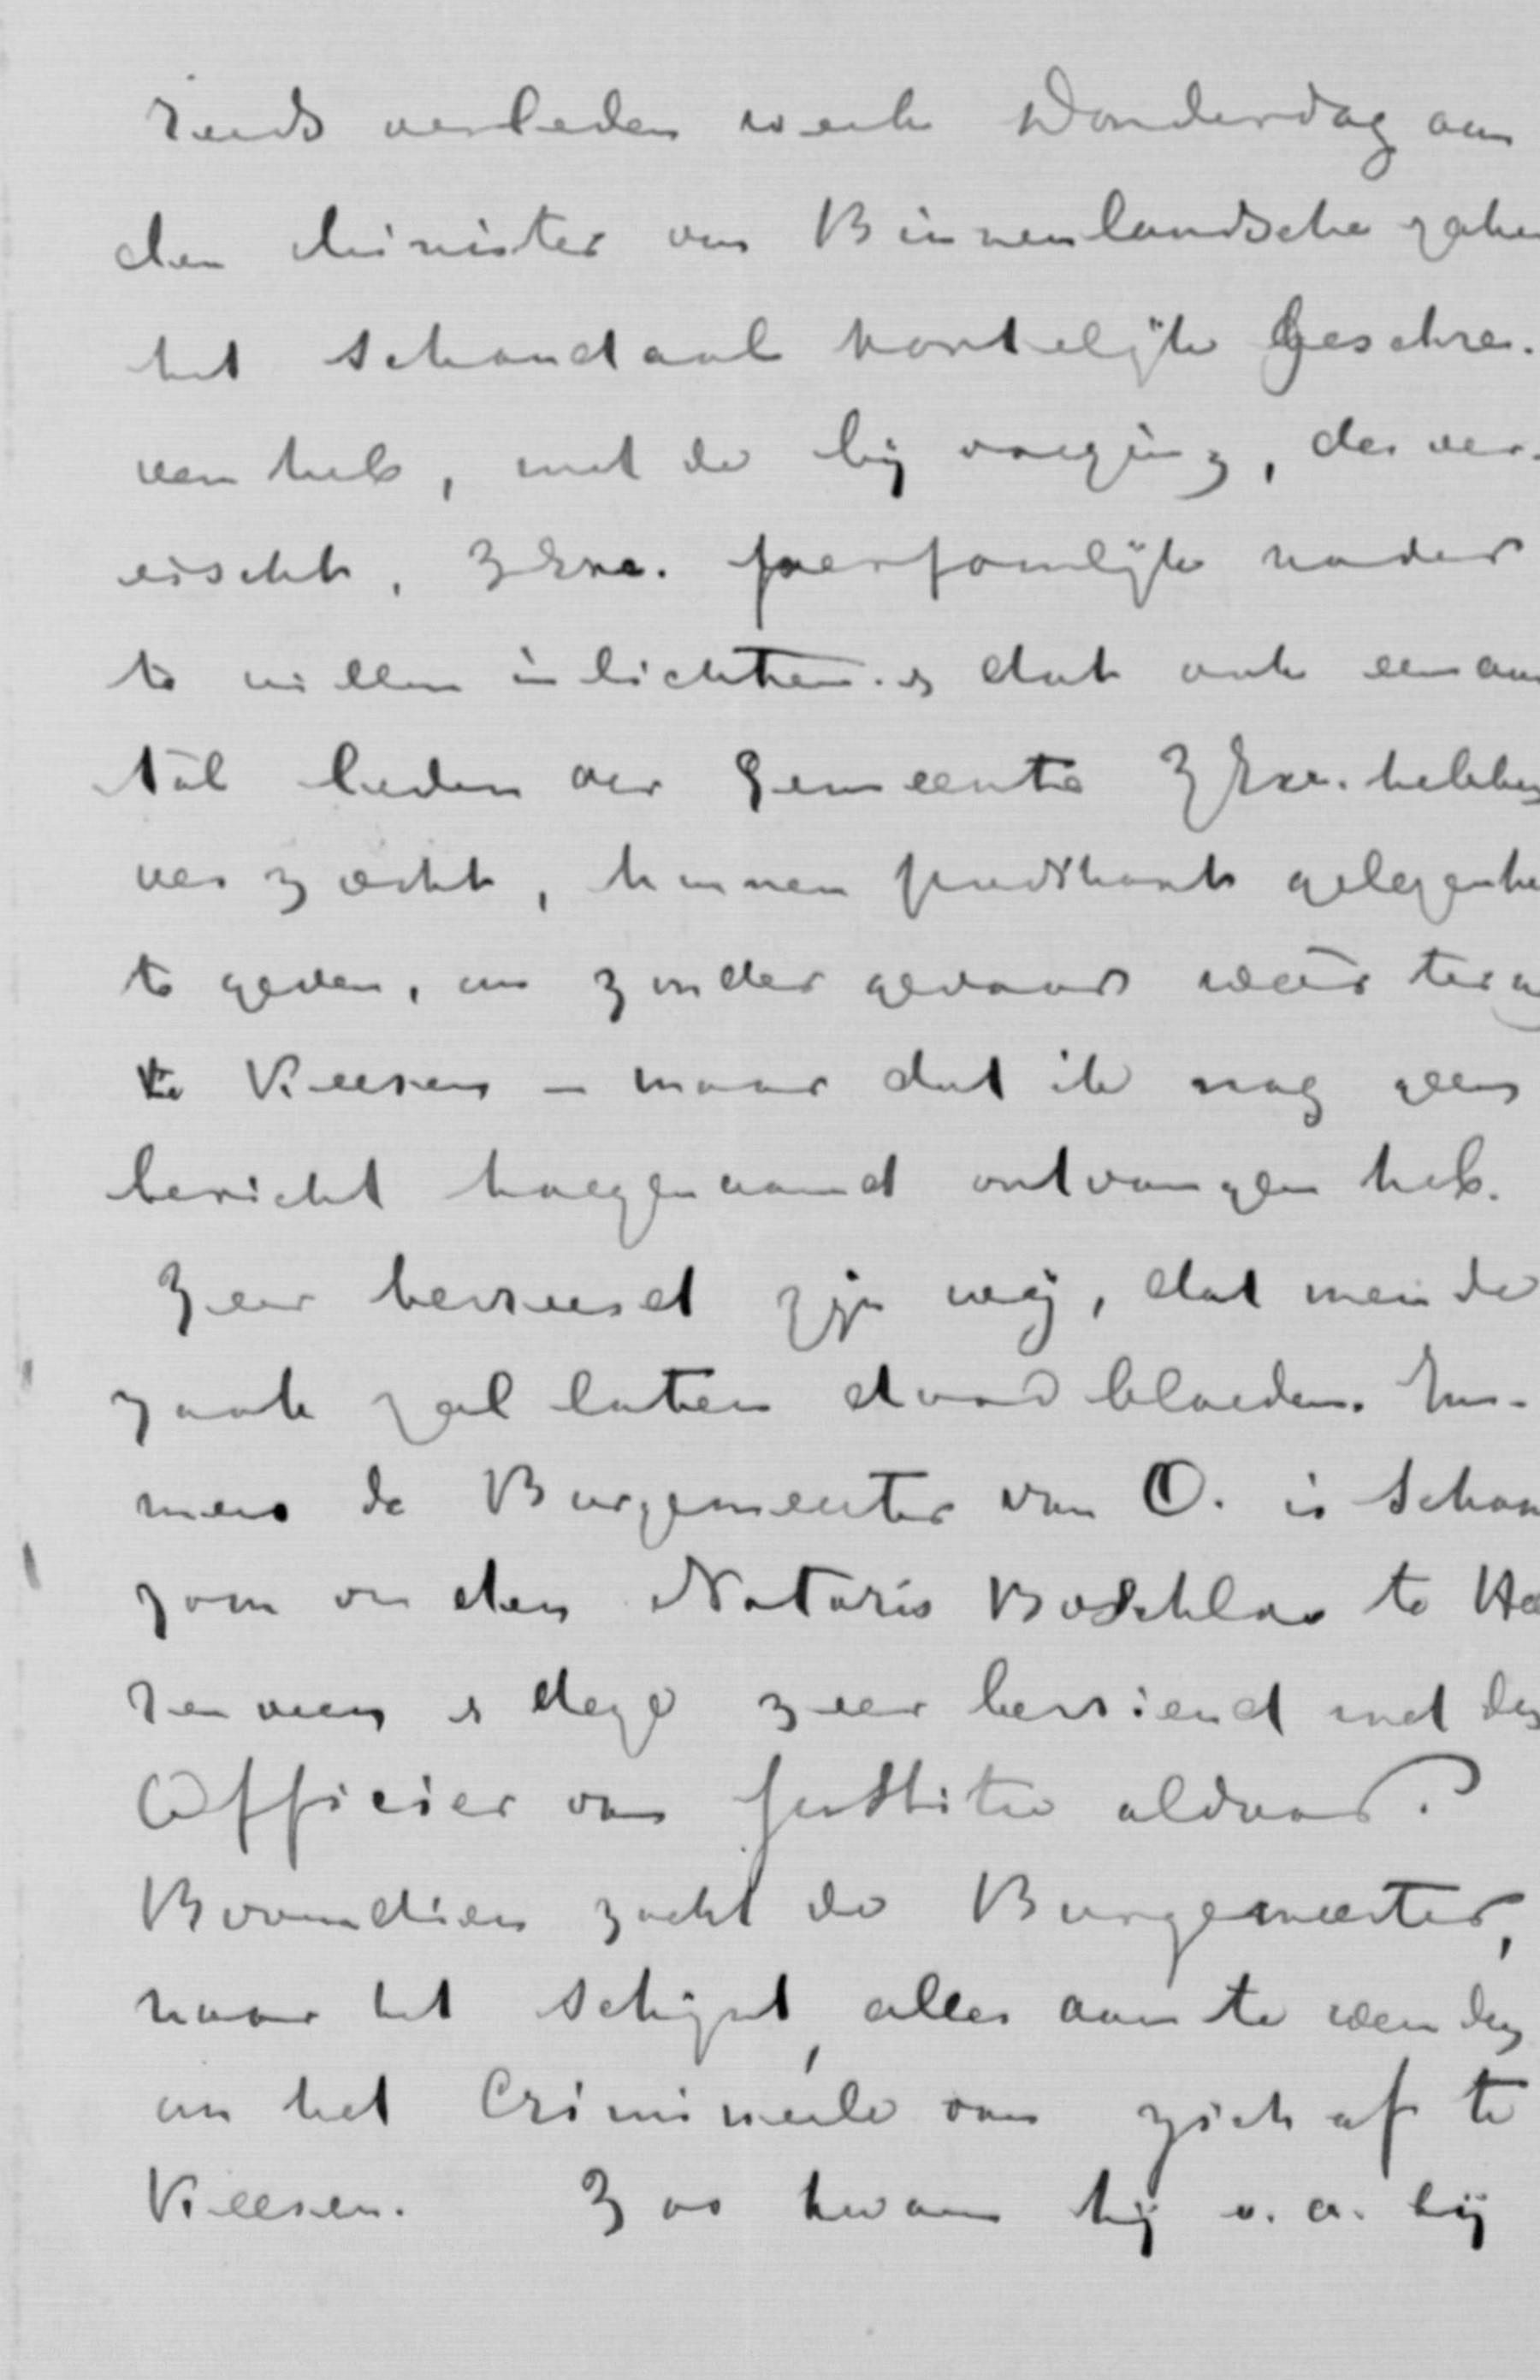 reeds verleden week Donderdag aan
den Minister van Binnenlandsche zake
het schandaal kortelijk geschre-
ven heb, met de bijvoeging, des ver-
eischt, ZExc. persoonlijk nader
te willen inlichten. & dat ook een aan
tal leden der gemeente ZExc. hebben
verzocht, hunnen predikant gelegenhe
te geven, om zonder gevaar weêr terug
te keeren – maar dat ik nog geen
bericht hoegenaamd ontvangen heb.
Zeer bevreesd zijn wij, dat men de
zaak zal laten doodbloeden. Im-
mers de Burgemeester van O. is schoon
zoon van den Notaris te Hee
renveen & deze zeer bevriend met den
Officier van Justitie aldaar.
Bovendien zoekt de Burgemeester,
naar het schijnt, alles aan te wenden
om het Crimineele van zich af te
keeren. Zoo kwam hij o.a. bij